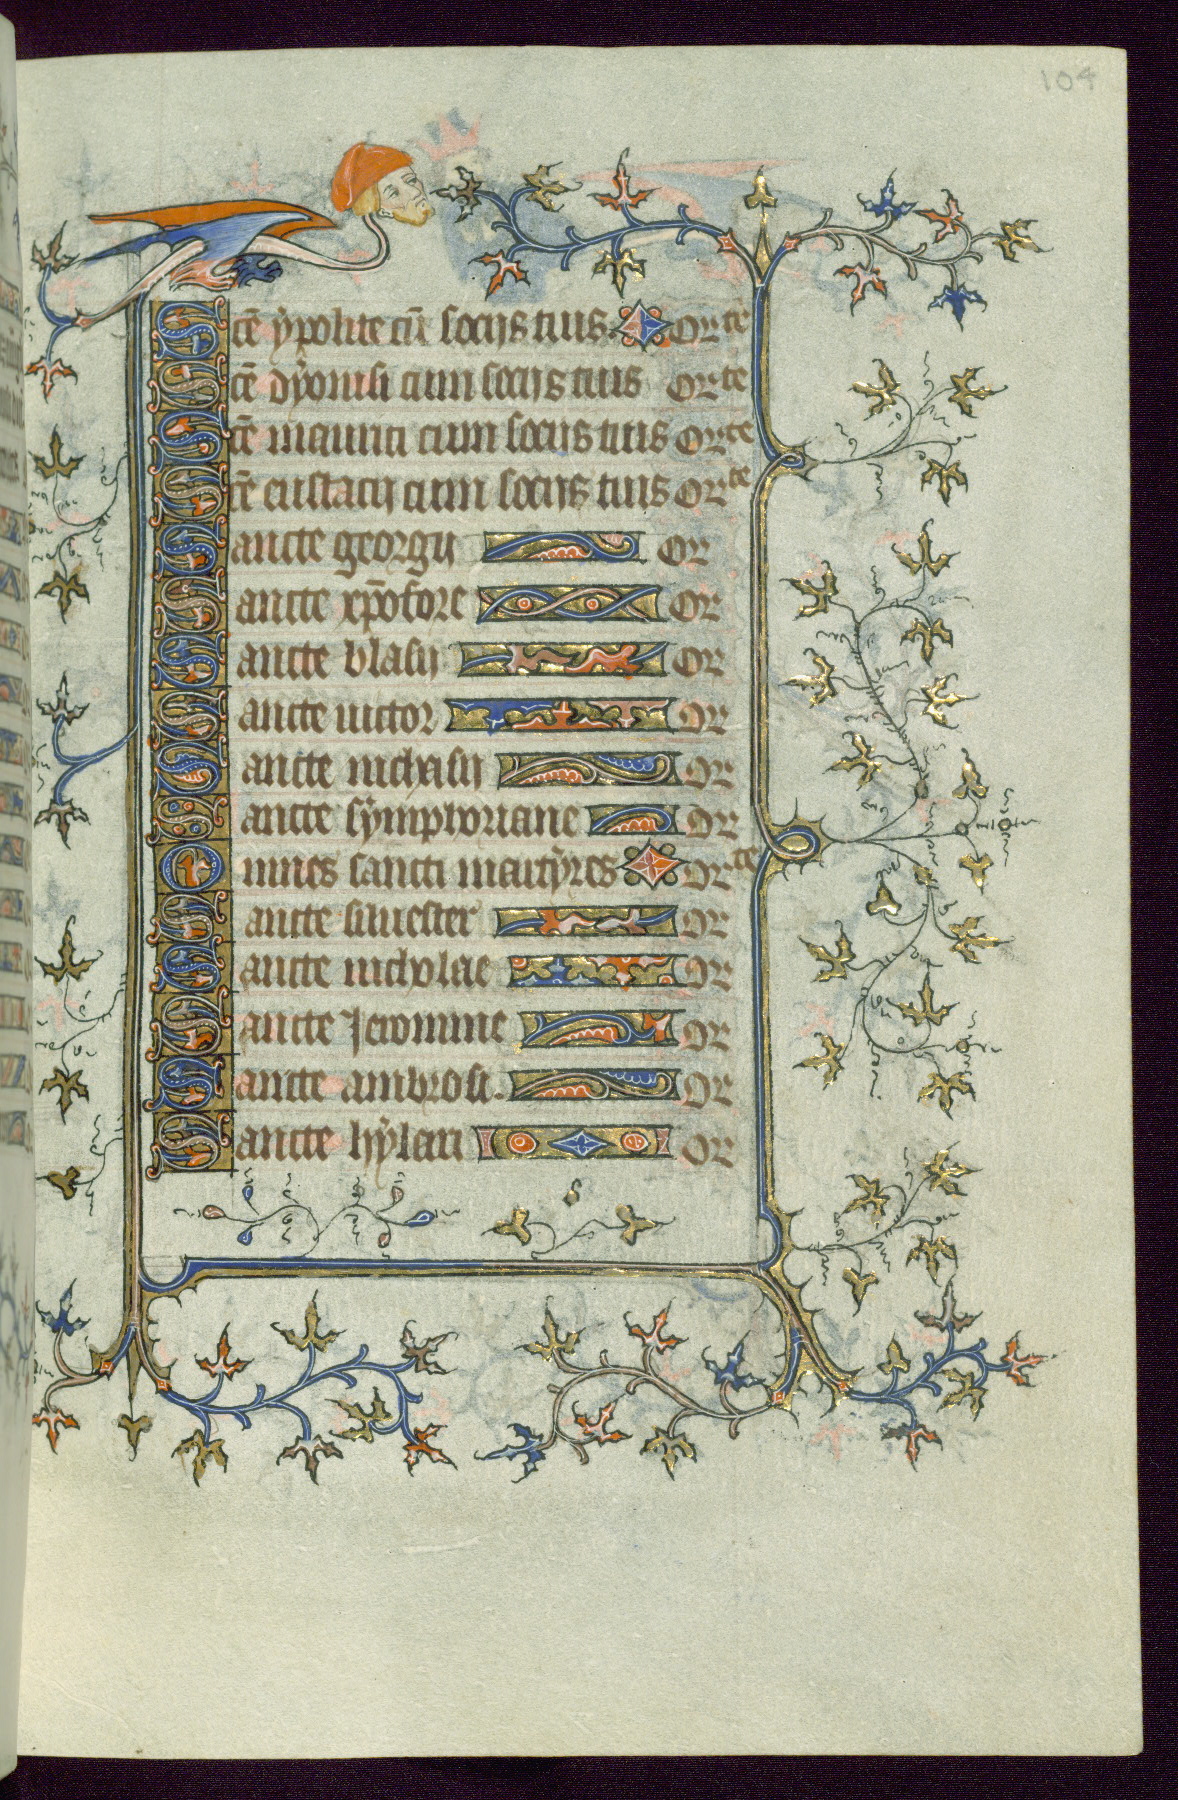 104
Scē ypolite cū socijs tuis Or te
Scē dyonisi cum socijs tuis Or te
Scē mauriti cum socijs tuis Or te
Scē eustacij cum socijs tuis Or te
Sancte georgij Or
Sancte xp̄ofore Or
Sancte blasij Or
Sancte uictor Or
Sancte nichasij Or
Sancte symphoriane Or
Omnes sancti martyres Or te
Sancte siluester Or
Sancte nicholae Or
Sancte Jeromime Or
Sancte ambrosi. Or
Sancte hylari Or